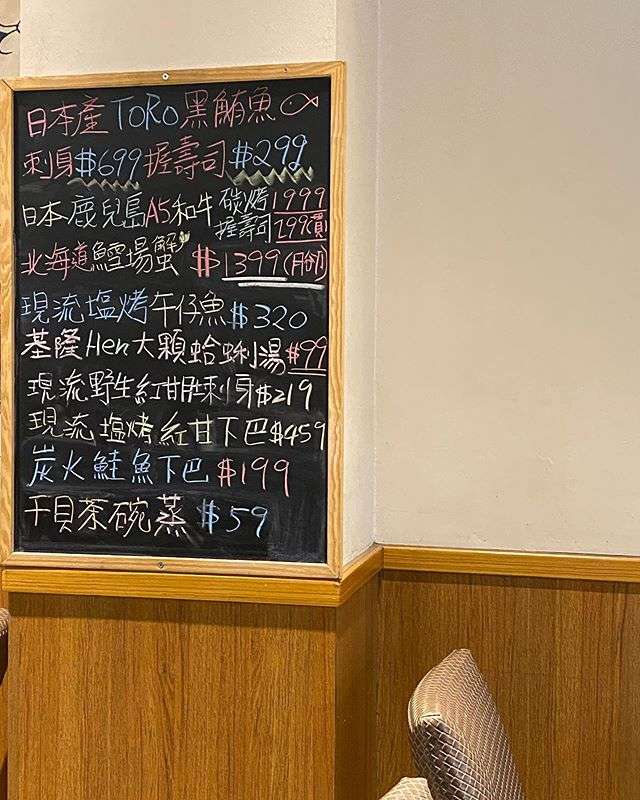 日本產TORO黑鮪魚
刺身$699握壽司$299
日本鹿兒島A5和牛 碳烤1999
握壽司299(貫)
北海道鱈場蟹 $1399(月份)
現流塩烤午仔魚$320
基隆Hen大顆蛤蜊湯$99
現流野生紅甘肚刺身$219
現流塩烤紅甘下巴$459
炭火鮭魚下巴$199
干貝茶碗蒸$59